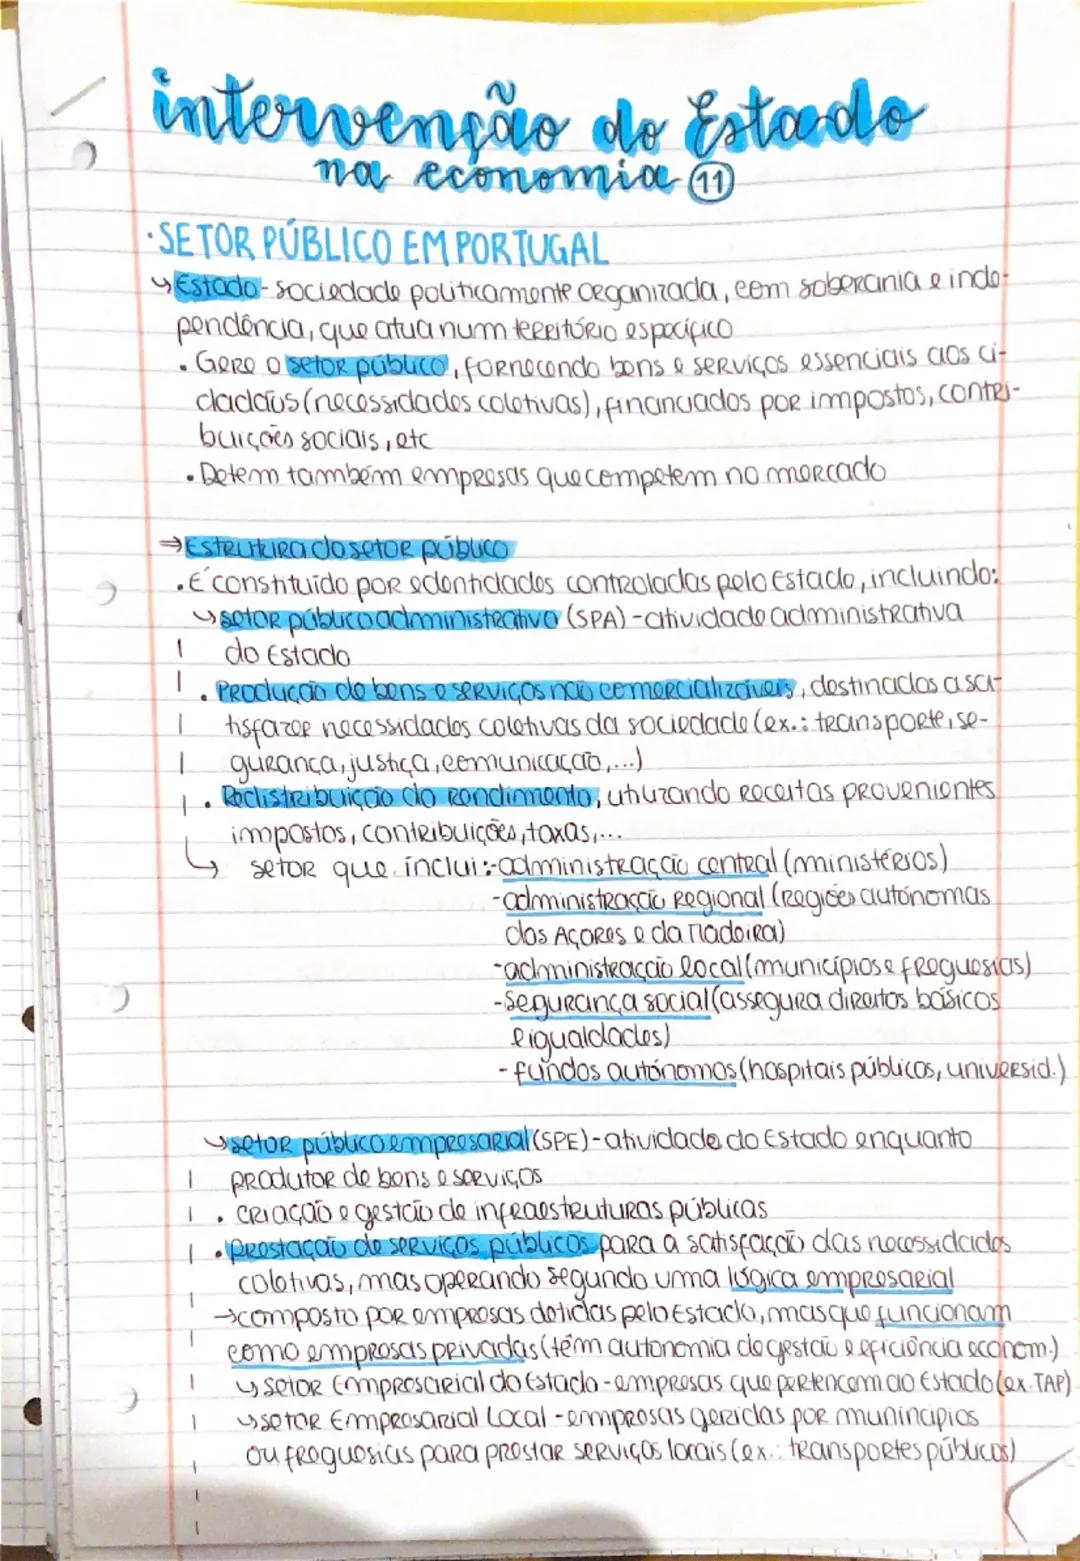 intervenção do Estado
na economia 11
· SETOR PÚBLICO EM PORTUGAL
↳ Estado - sociedade politicamente organizada, com soberania e inde-
pendência, que atua num território específico
• Gere o setor público, fornecendo bens e serviços essenciais aos ci-
dadãos (necessidades coletivas), financiados por impostos, contri-
buições sociais, etc
• Detem também empresas que competem no mercado
⇒ Estrutura do setor público
• É constituído por edentidades controladas pelo Estado, incluindo:
↳ setor público administrativo (SPA) - atividade administrativa
do Estado
• Produção de bens e serviços não comercializáveis, destinados a sa-
tisfazer necessidades coletivas da sociedade (ex.: transporte, se-
gurança, justiça, comunicação, ...)
• Redistribuição do rendimento, utilizando receitas provenientes
impostos, contribuições, taxas, ...
↳ setor que inclui: - administração central (ministérios)
- administração regional (regiões autónomas
dos Açores e da Madeira)
- administração local (municípios e freguesias)
- Segurança social (assegura direitos básicos
e igualdades)
- fundos autónomos (hospitais públicos, universid.)
↳ setor público empresarial (SPE) - atividade do Estado enquanto
produtor de bens e serviços
• criação e gestão de infraestruturas públicas
• Prestação de serviços públicos para a satisfação das necessidades
coletivas, mas operando segundo uma lógica empresarial
→ composto por empresas detidas pelo Estado, mas que funcionam
como empresas privadas (têm autonomia de gestão e eficiência econom.)
↳ setor Empresarial do Estado - empresas que pertencem ao Estado (ex. TAP)
↳ setor Empresarial Local - empresas geridas por munincipios
ou freguesias para prestar serviços locais (ex.: transportes públicos)